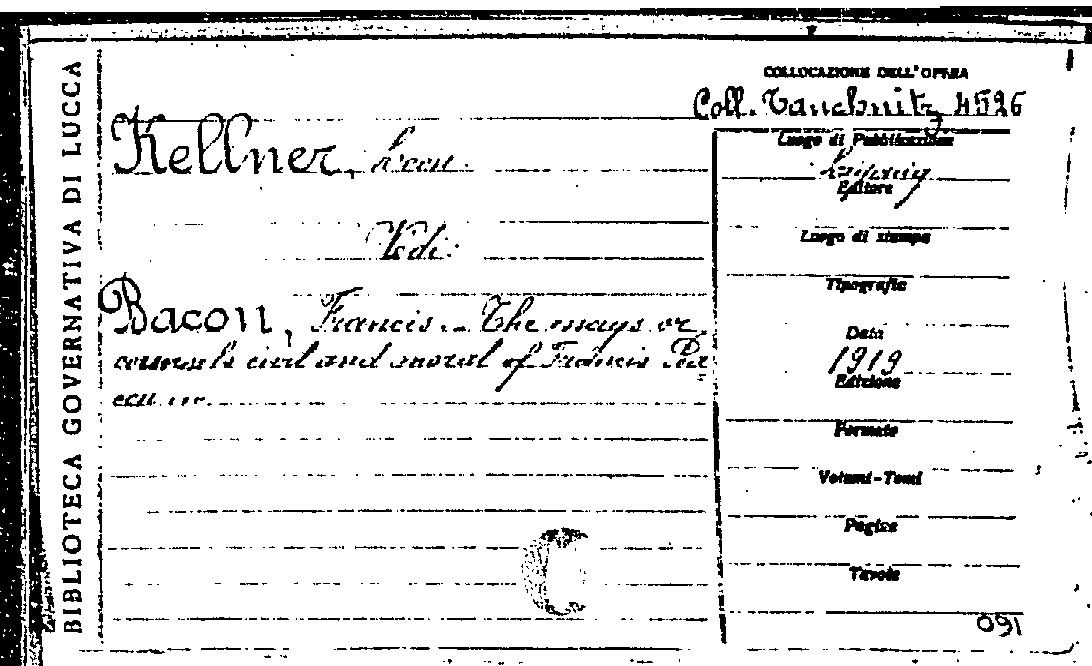 BIBLIOTECA GOVERNATIVA DI LUCCA
COLLOCAZIONE DELL'OPERA
Coll. Tauchnitz 4526
Kellner, Leon.
Vedi:
Bacon, Francis. - The essays or
counsels civil and moral of Francis Ba
con
Luogo di Pubblicazione
Leipzig
Editore
Luogo di stampa
Tipografia
Data
1919
Edizione
Formato
Volumi-Tomi
Pagine
Tavole
091